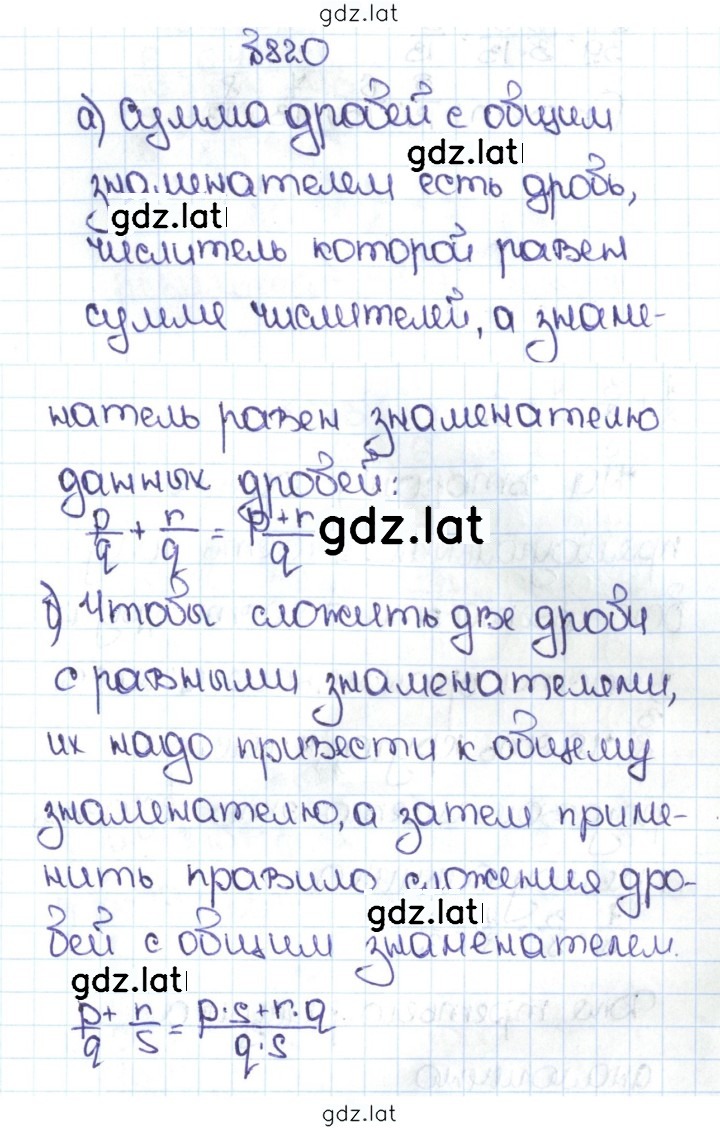 gdz.lat
№820
а) Сумма дробей с общим
gdz.lat
знаменателем есть дробь,
gdz.lat
числитель которой равен
сумме числителей, а знаме-
натель равен знаменателю
данных дробей:
p/q + r/q = p+r/q gdz.lat
б) Чтобы сложить две дроби
с равными знаменателями,
их надо привести к общему
знаменателю, а затем приме-
нить правило сложения дро-
gdz.lat
бей с общим знаменателем.
gdz.lat
p/q + r/s = p·s+r·q/q·s
gdz.lat